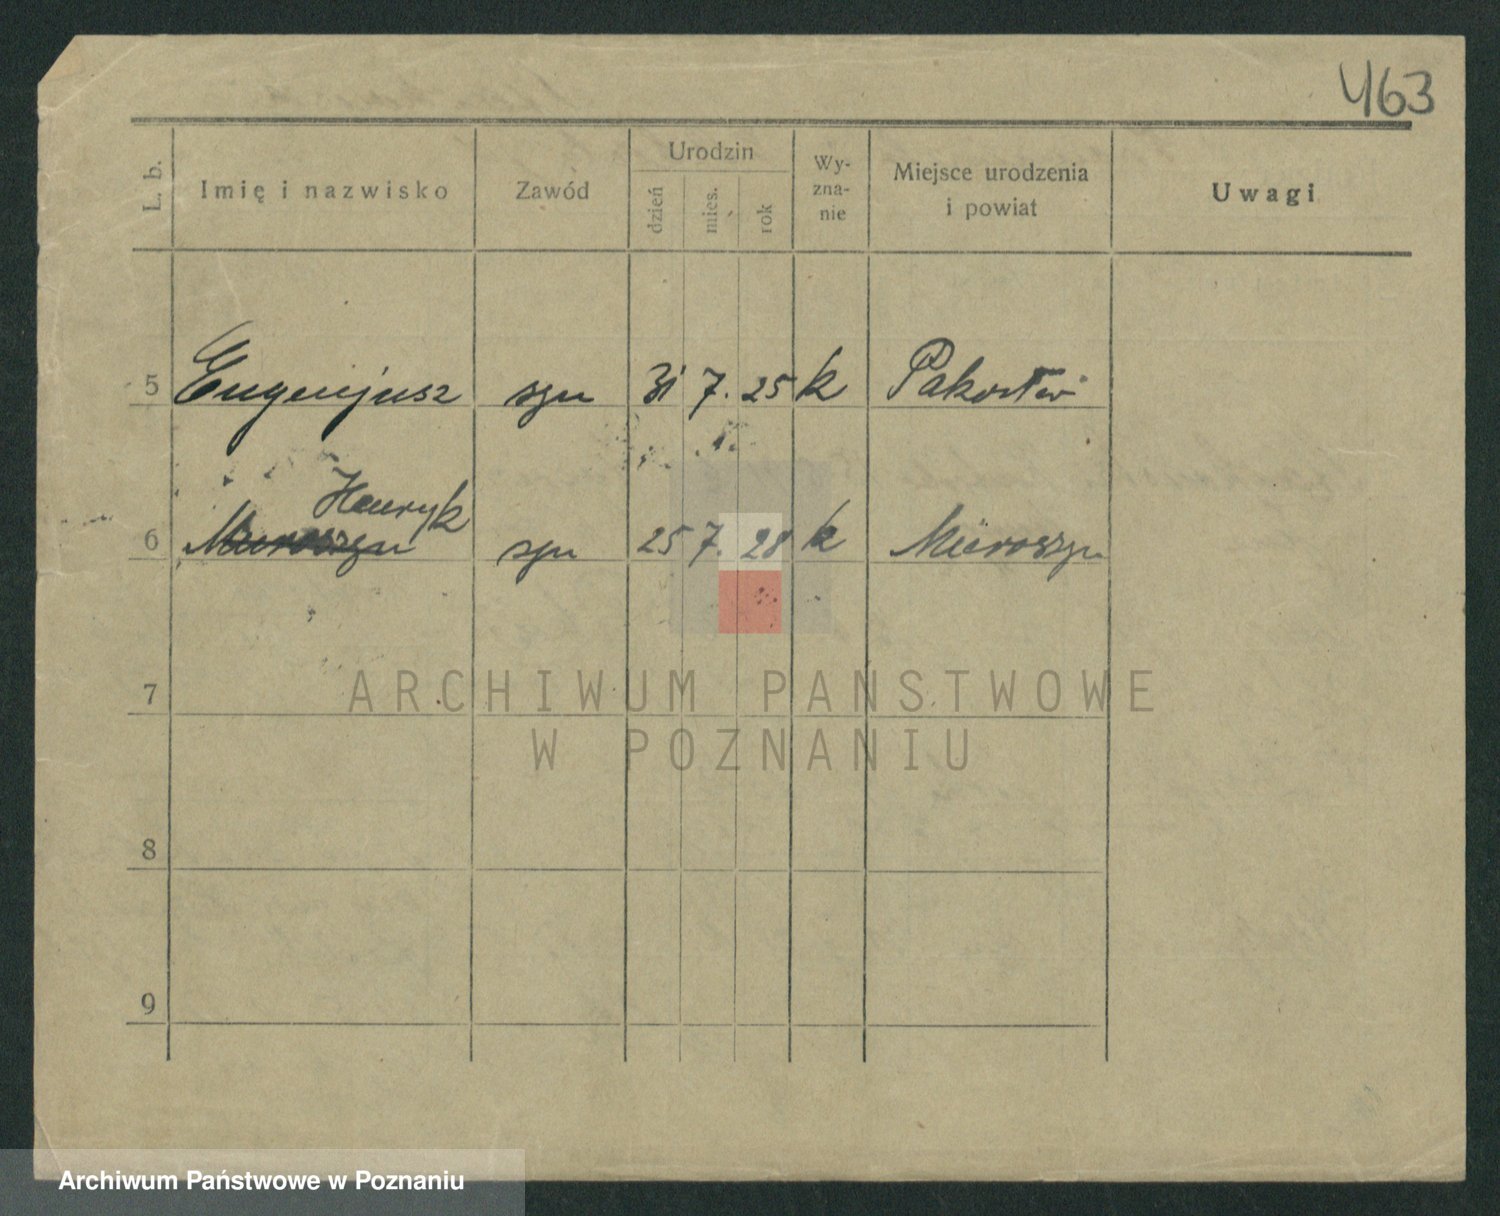 463
L. b. Imię i nazwisko Zawód Urodzin dzień mies. rok Wy-zna-nie Miejsce urodzenia i powiat Uwagi
5 Eugenijusz syn 31 7. 25 k
Henryk
6 syn 25 7. 28 k Mieroszyn
7
8
9
ARCHIWUM PAŃSTWOWE
W POZNANIU
Archiwum Państwowe w Poznaniu